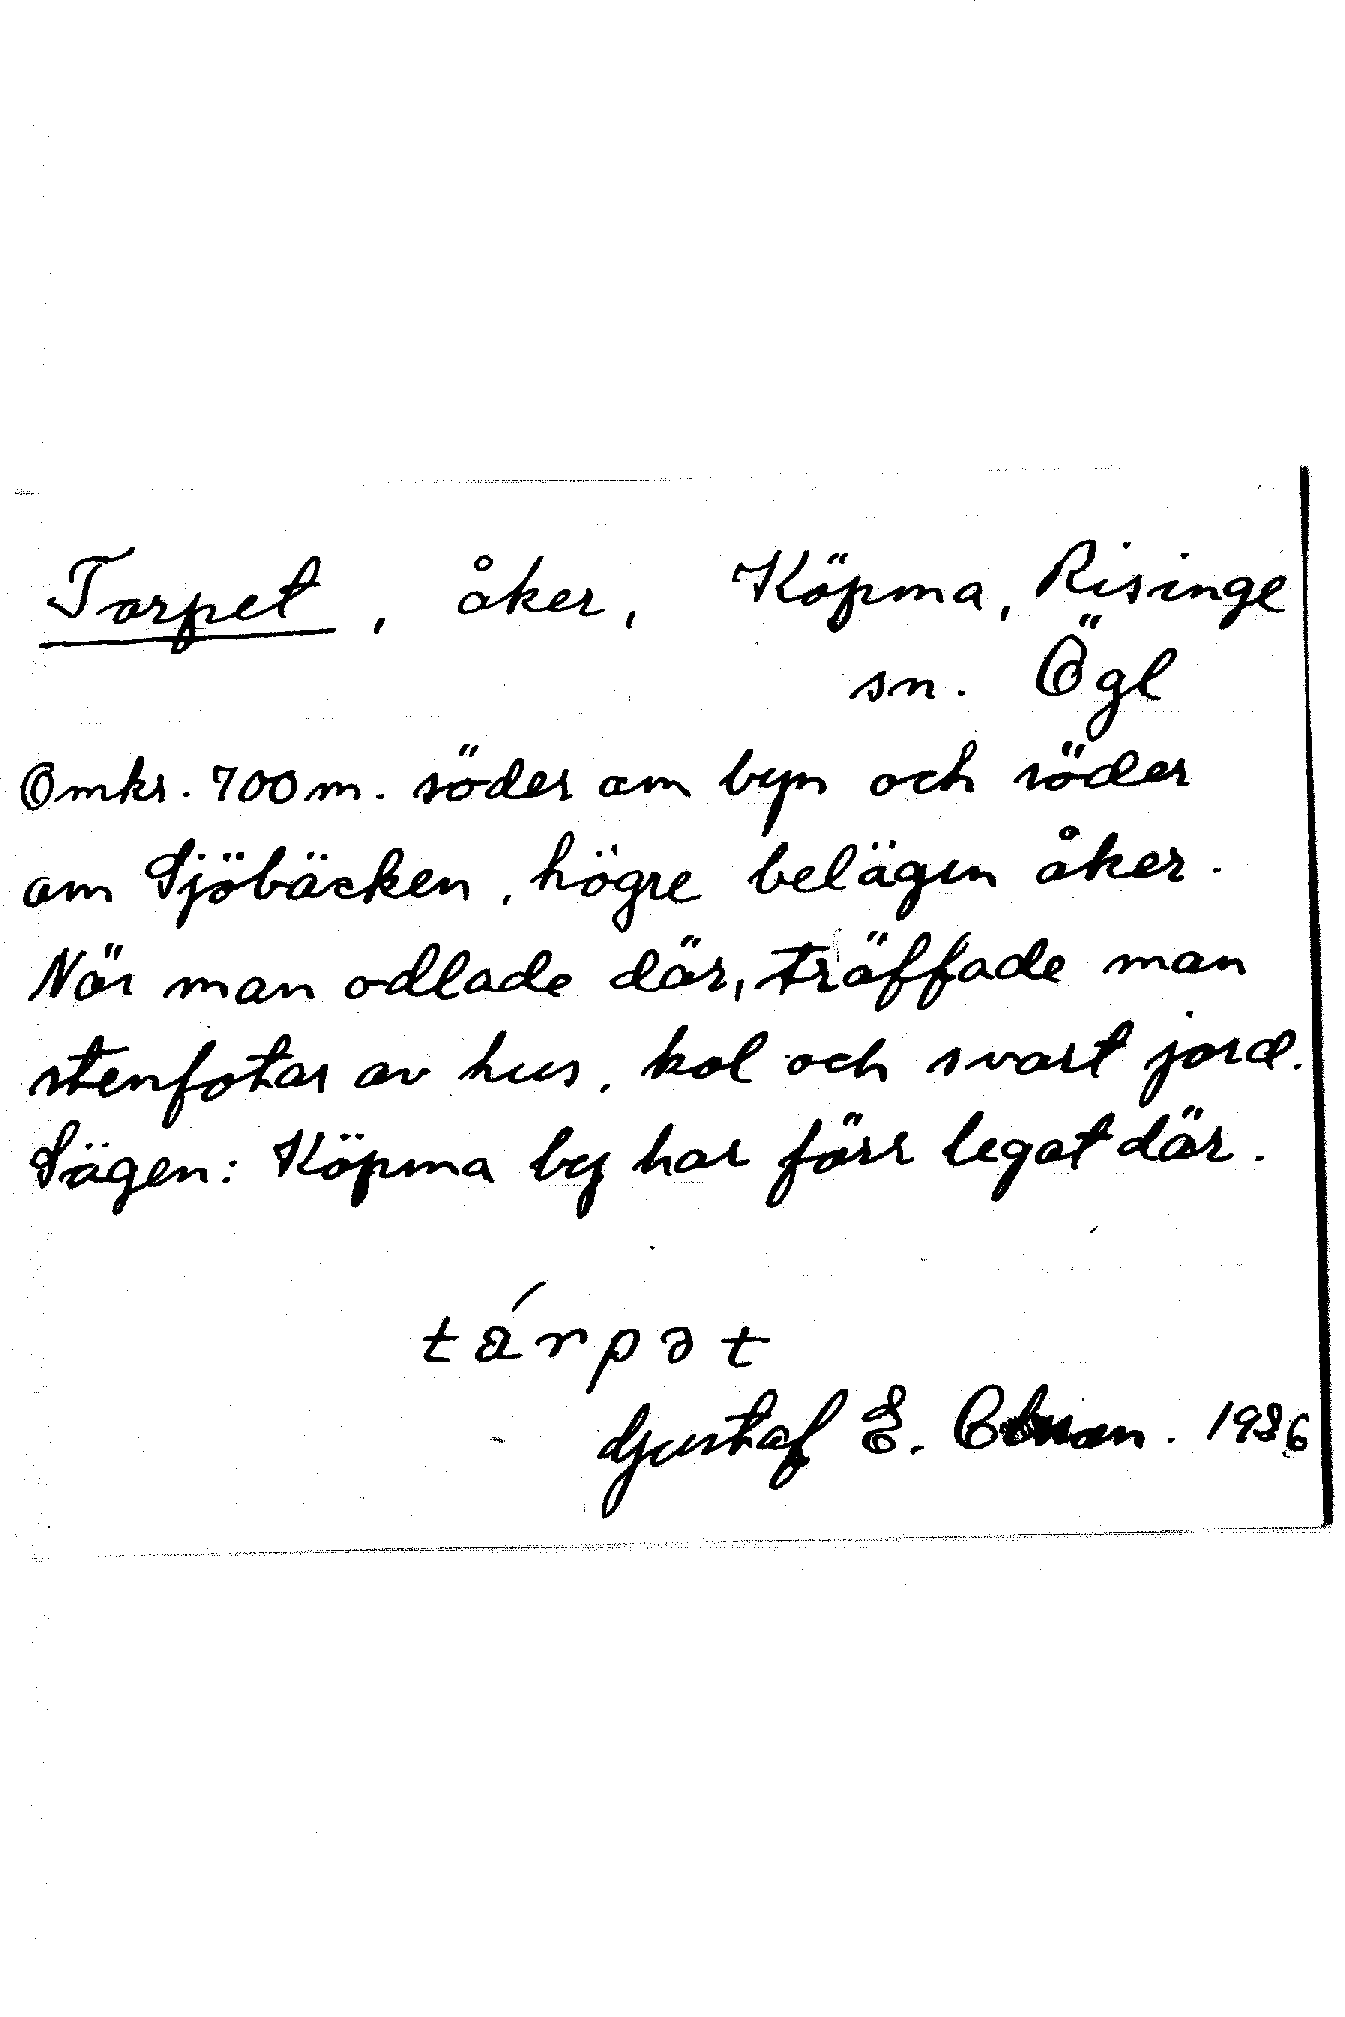 Torpet, åker, Köpma, Risinge
sn. Ögl
Omkr. 700 m. söder om byn och söder
om Sjöbäcken, högre belägen åker.
När man odlade där, träffade man
stenfotar av hus, kol och svart jord.
Sägen: Köpma by har förr legat där.
tárpət
Gustaf E. 1986